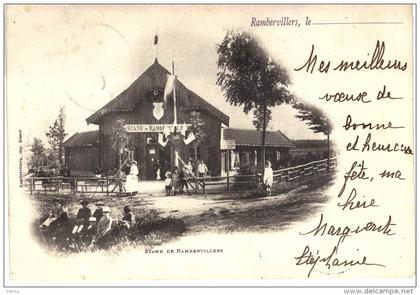 Rambervillers, le
Mes meilleurs
vœux de
bonne
et heureuse
fête, ma
chère
Marguerite
Stéphanie
STAND DE RAMBERVILLERS
STAND DE RAMBERVILLERS